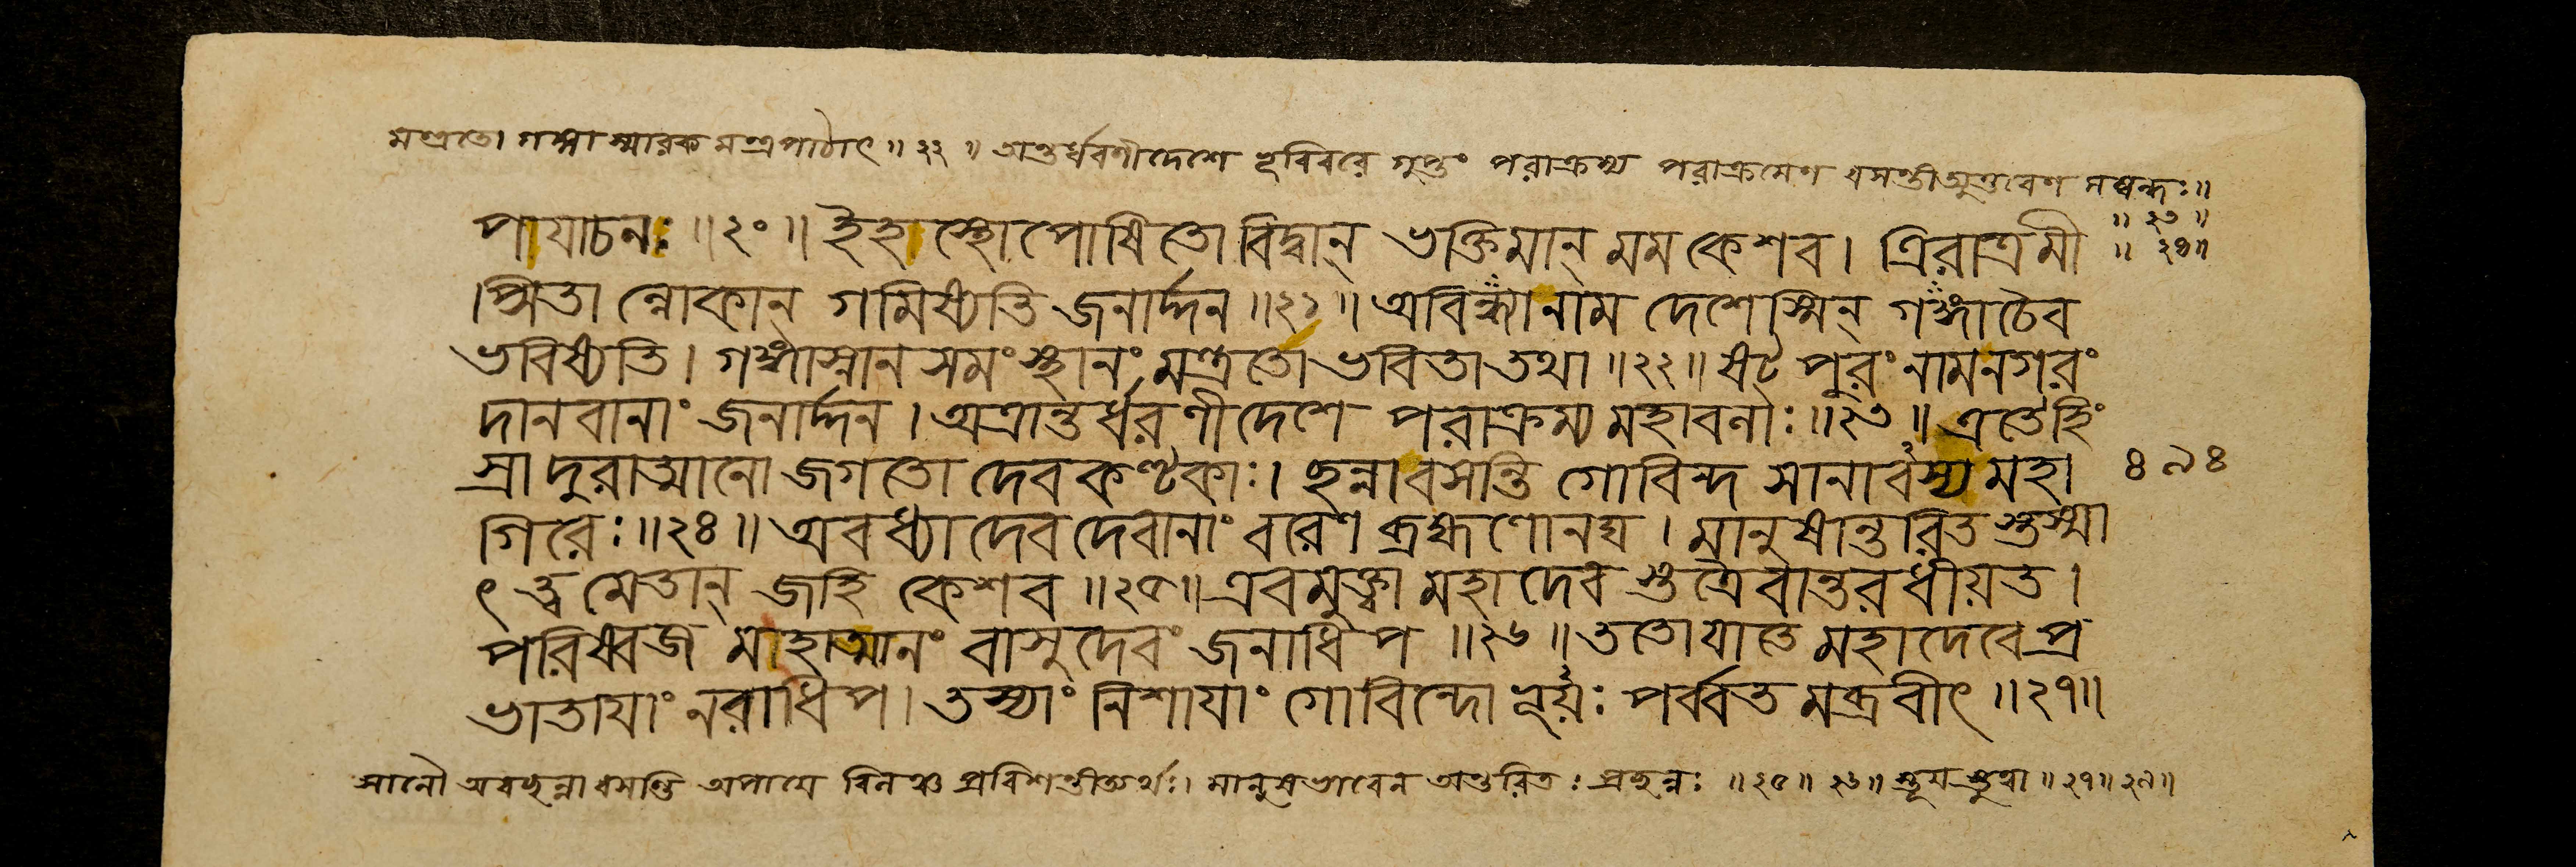 মন্ত্রতো গঙ্গাস্মারকমন্ত্রপাঠাৎ॥২২॥ অন্তর্ধরণীদেশে ভূবিবরে গুপ্তং পরাক্রম্য পরাক্রমেণ বসন্তীত্যুত্তরেণ সম্বন্ধঃ॥
॥২৩॥
॥২৪॥
পাযাচনঃ॥২০॥ ইহাস্থোপোষিতো বিদ্বান্ ভক্তিমান্ মম কেশব। ত্রিরাত্রমী
প্সিতা ল্লোকান্ গমিষ্যতি জনার্দ্দন॥২১॥ অবিন্ধ্যানাম দেশেস্মিন্ গঙ্গাচৈব
ভবিষ্যতি। গঙ্গাস্নান সমং স্থানং মন্ত্রতো ভবিতা তথা॥২২॥ ষট্ পুরং নাম নগরং
দানবানাং জনার্দ্দন। অত্রান্তর্ধরণী দেশে পরাক্রম্য মহাবলাঃ॥২৩॥ এতেহিং
স্রা দুরাত্মানো জগতো দেবকণ্টকাঃ। ছন্না বসন্তি গোবিন্দ সানাবস্য মহা
৪৯৪
গিরেঃ॥২৪॥ অবধ্যা দেবদেবানাং বরেণ ব্রহ্মণোনঘ। মানুষান্তরিত স্তস্মা
ৎ ত্ত্বমেতান্ জহি কেশব॥২৫॥ এবমুক্ত্বা মহাদেব স্তত্রৈবান্তরধীয়ত।
পরিষ্বজ্য মাহাত্মানং বাসুদেবং জনাধিপ॥২৬॥ ততো যাতে মহাদেবে প্র
ভাতাযাং নরাধিপ। তস্যাং নিশাযাং গোবিন্দো ভূয়ঃ পর্ব্বত মব্রবীৎ॥২৭॥
সানৌ অবছন্না বসন্তি অপাযে বিলঞ্চ প্রবিশন্তীত্যর্থঃ। মানুষভাবেন অন্তরিতঃ প্রছন্নঃ॥২৫॥২৬॥ ॥২৭॥২৮॥